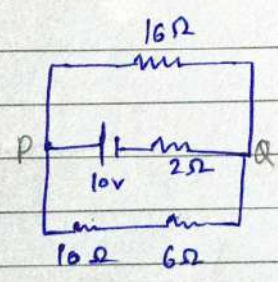 16Ω
P Q
10v 2Ω
10Ω 6Ω